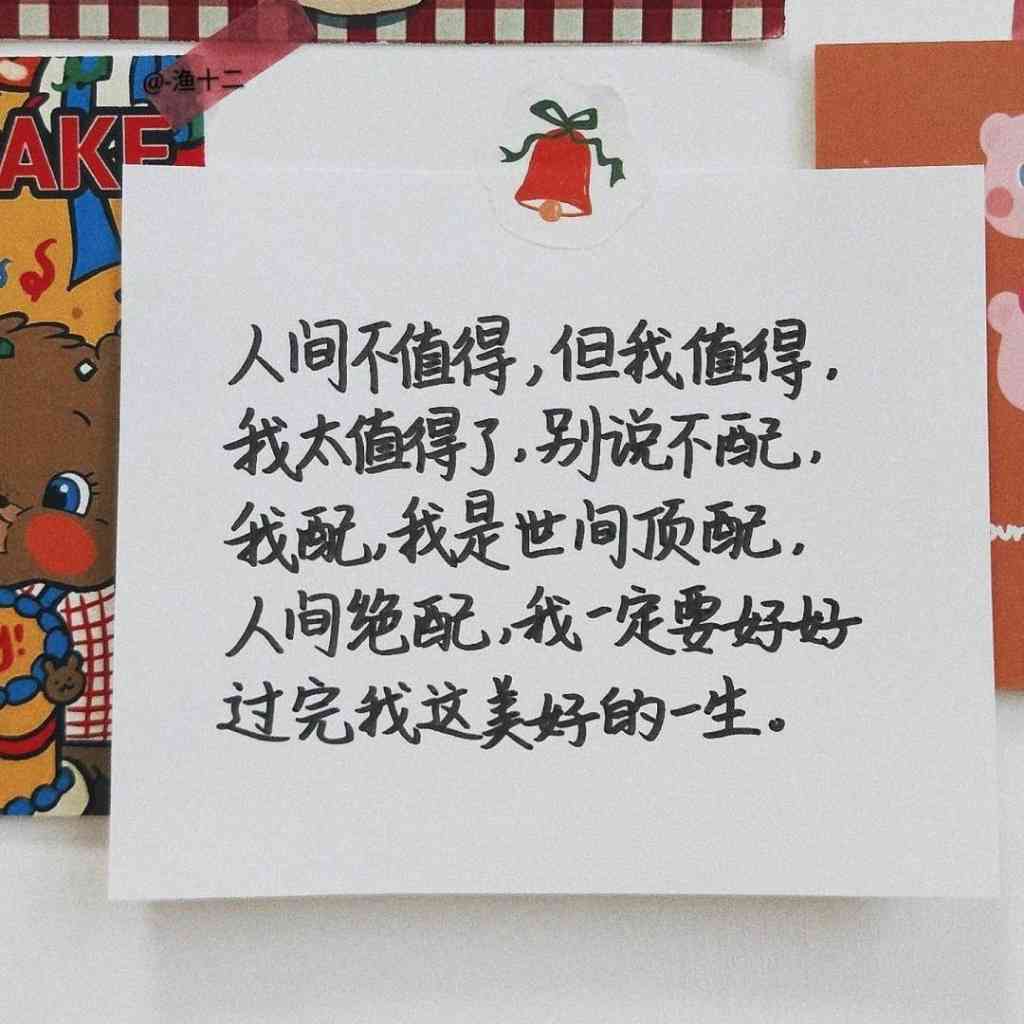 @-渔十二
AKE
人间不值得,但我值得.
我太值得了,别说不配,
我配,我是世间顶配.
人间绝配,我一定要好好
过完我这美好的一生。